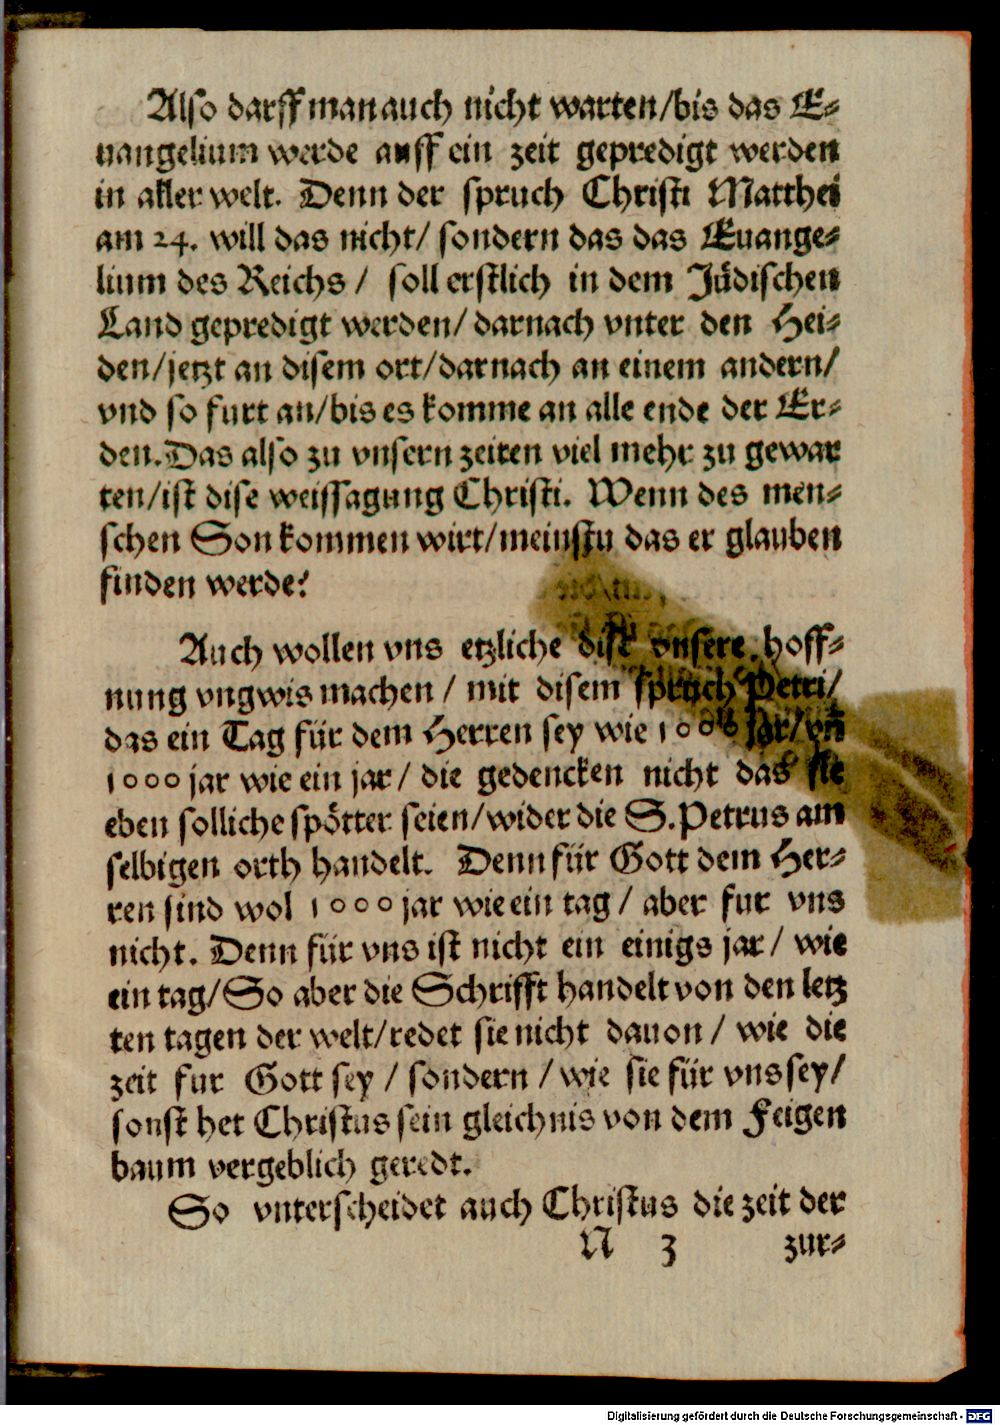 Also darff man auch nicht warten/bis das E⸗
uangelium werde auff ein zeit gepredigt werden
in aller welt. Denn der spruch Christi Matthei
am 24. will das nicht/ sondern das das Euange⸗
lium des Reichs/ soll erstlich in dem Jüdischen
Land gepredigt werden/ darnach vnter den Hei⸗
den/jetzt an disem ort/darnach an einem andern/
vnd so furt an/bis es komme an alle ende der Er⸗
den. Das also zu vnsern zeiten viel mehr zu gewar
ten/ist dise weissagung Christi. Wenn des men⸗
schen Son kommen wirt/meinstu das er glauben
finden werde?
Auch wollen vns etzliche diſe vnsere hoff⸗
nung vngwis machen/ mit disem spruch Petri/
das ein Tag für dem Herren sey wie 1000 jar/vñ
1000 jar wie ein jar/ die gedencken nicht das sie
eben solliche spötter seien/wider die S. Petrus am
selbigen orth handelt. Denn für Gott dem Her⸗
ren sind wol 1000 jar wie ein tag/ aber fur vns
nicht. Denn für vns ist nicht ein einigs jar/ wie
ein tag/So aber die Schrifft handelt von den letz
ten tagen der welt/redet sie nicht dauon/ wie die
zeit fur Gott sey/ sondern/wie sie für vns sey/
sonst het Christus sein gleichnis von dem Feigen
baum vergeblich geredt.
So vnterscheidet auch Christus die zeit der
N 3 zur⸗
Digitalisierung gefördert durch die Deutsche Forschungsgemeinschaft - DFG